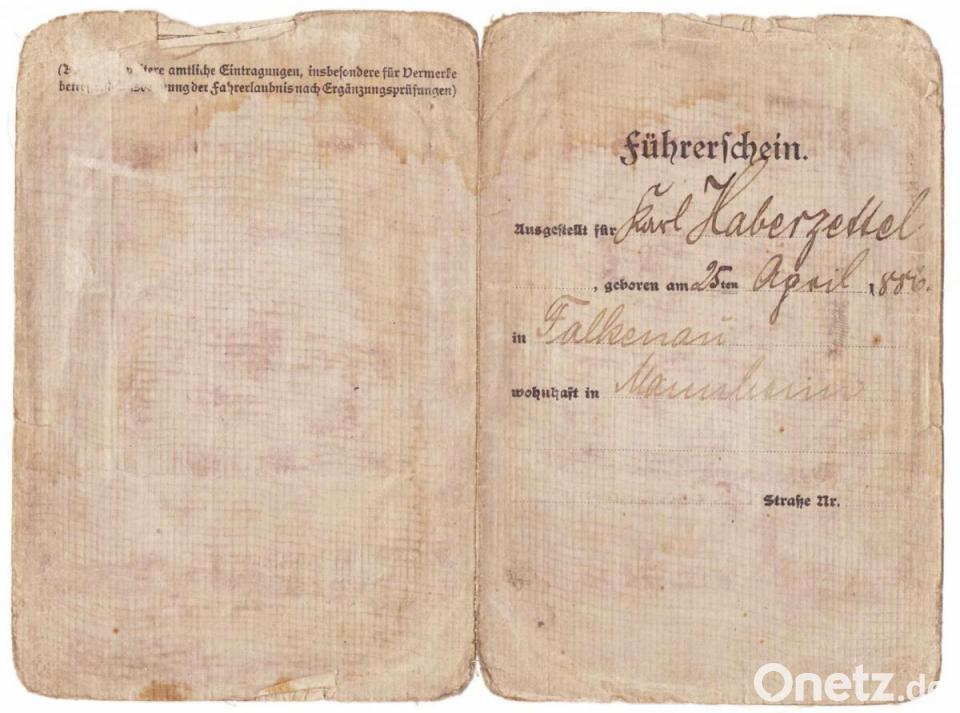 tere amtliche Eintragungen, insbesondere für Vermerke
ung der Fahrerlaubnis nach Ergänzungsprüfungen)
Führerschein.
Ausgestellt für Karl Haberzettel
, geboren am 25ten April 1886.
in Falkenau
wohnhaft in Mannheim
Straße Nr.
Onetz.de